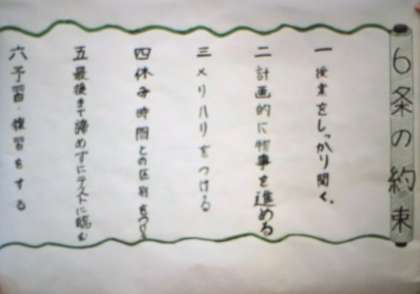 6条の約束
一 授業をしっかり聞く。
二 計画的に物事を進める
三 メリハリをつける
四 休み時間との区別をつける
五 最後まで諦めずにテストに臨む
六 予習・復習をする